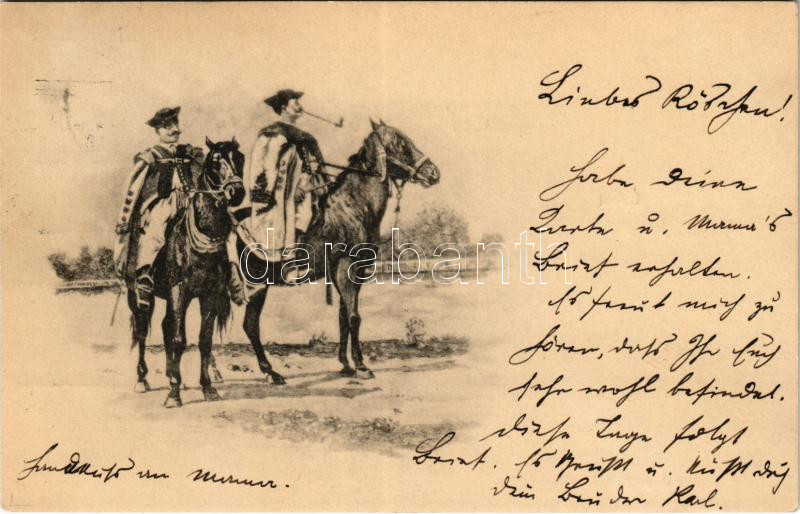 Liebes Röschen!
Habe Deine
Karte u. Mama's
Brief erhalten.
Es freut mich zu
hören, daß Ihr Euch
sehr wohl befindet.
Diese Tage folgt
Brief. Es grüßt u. küßt dich
dein Bruder Karl.
Handkuss an Mama.
darabanth